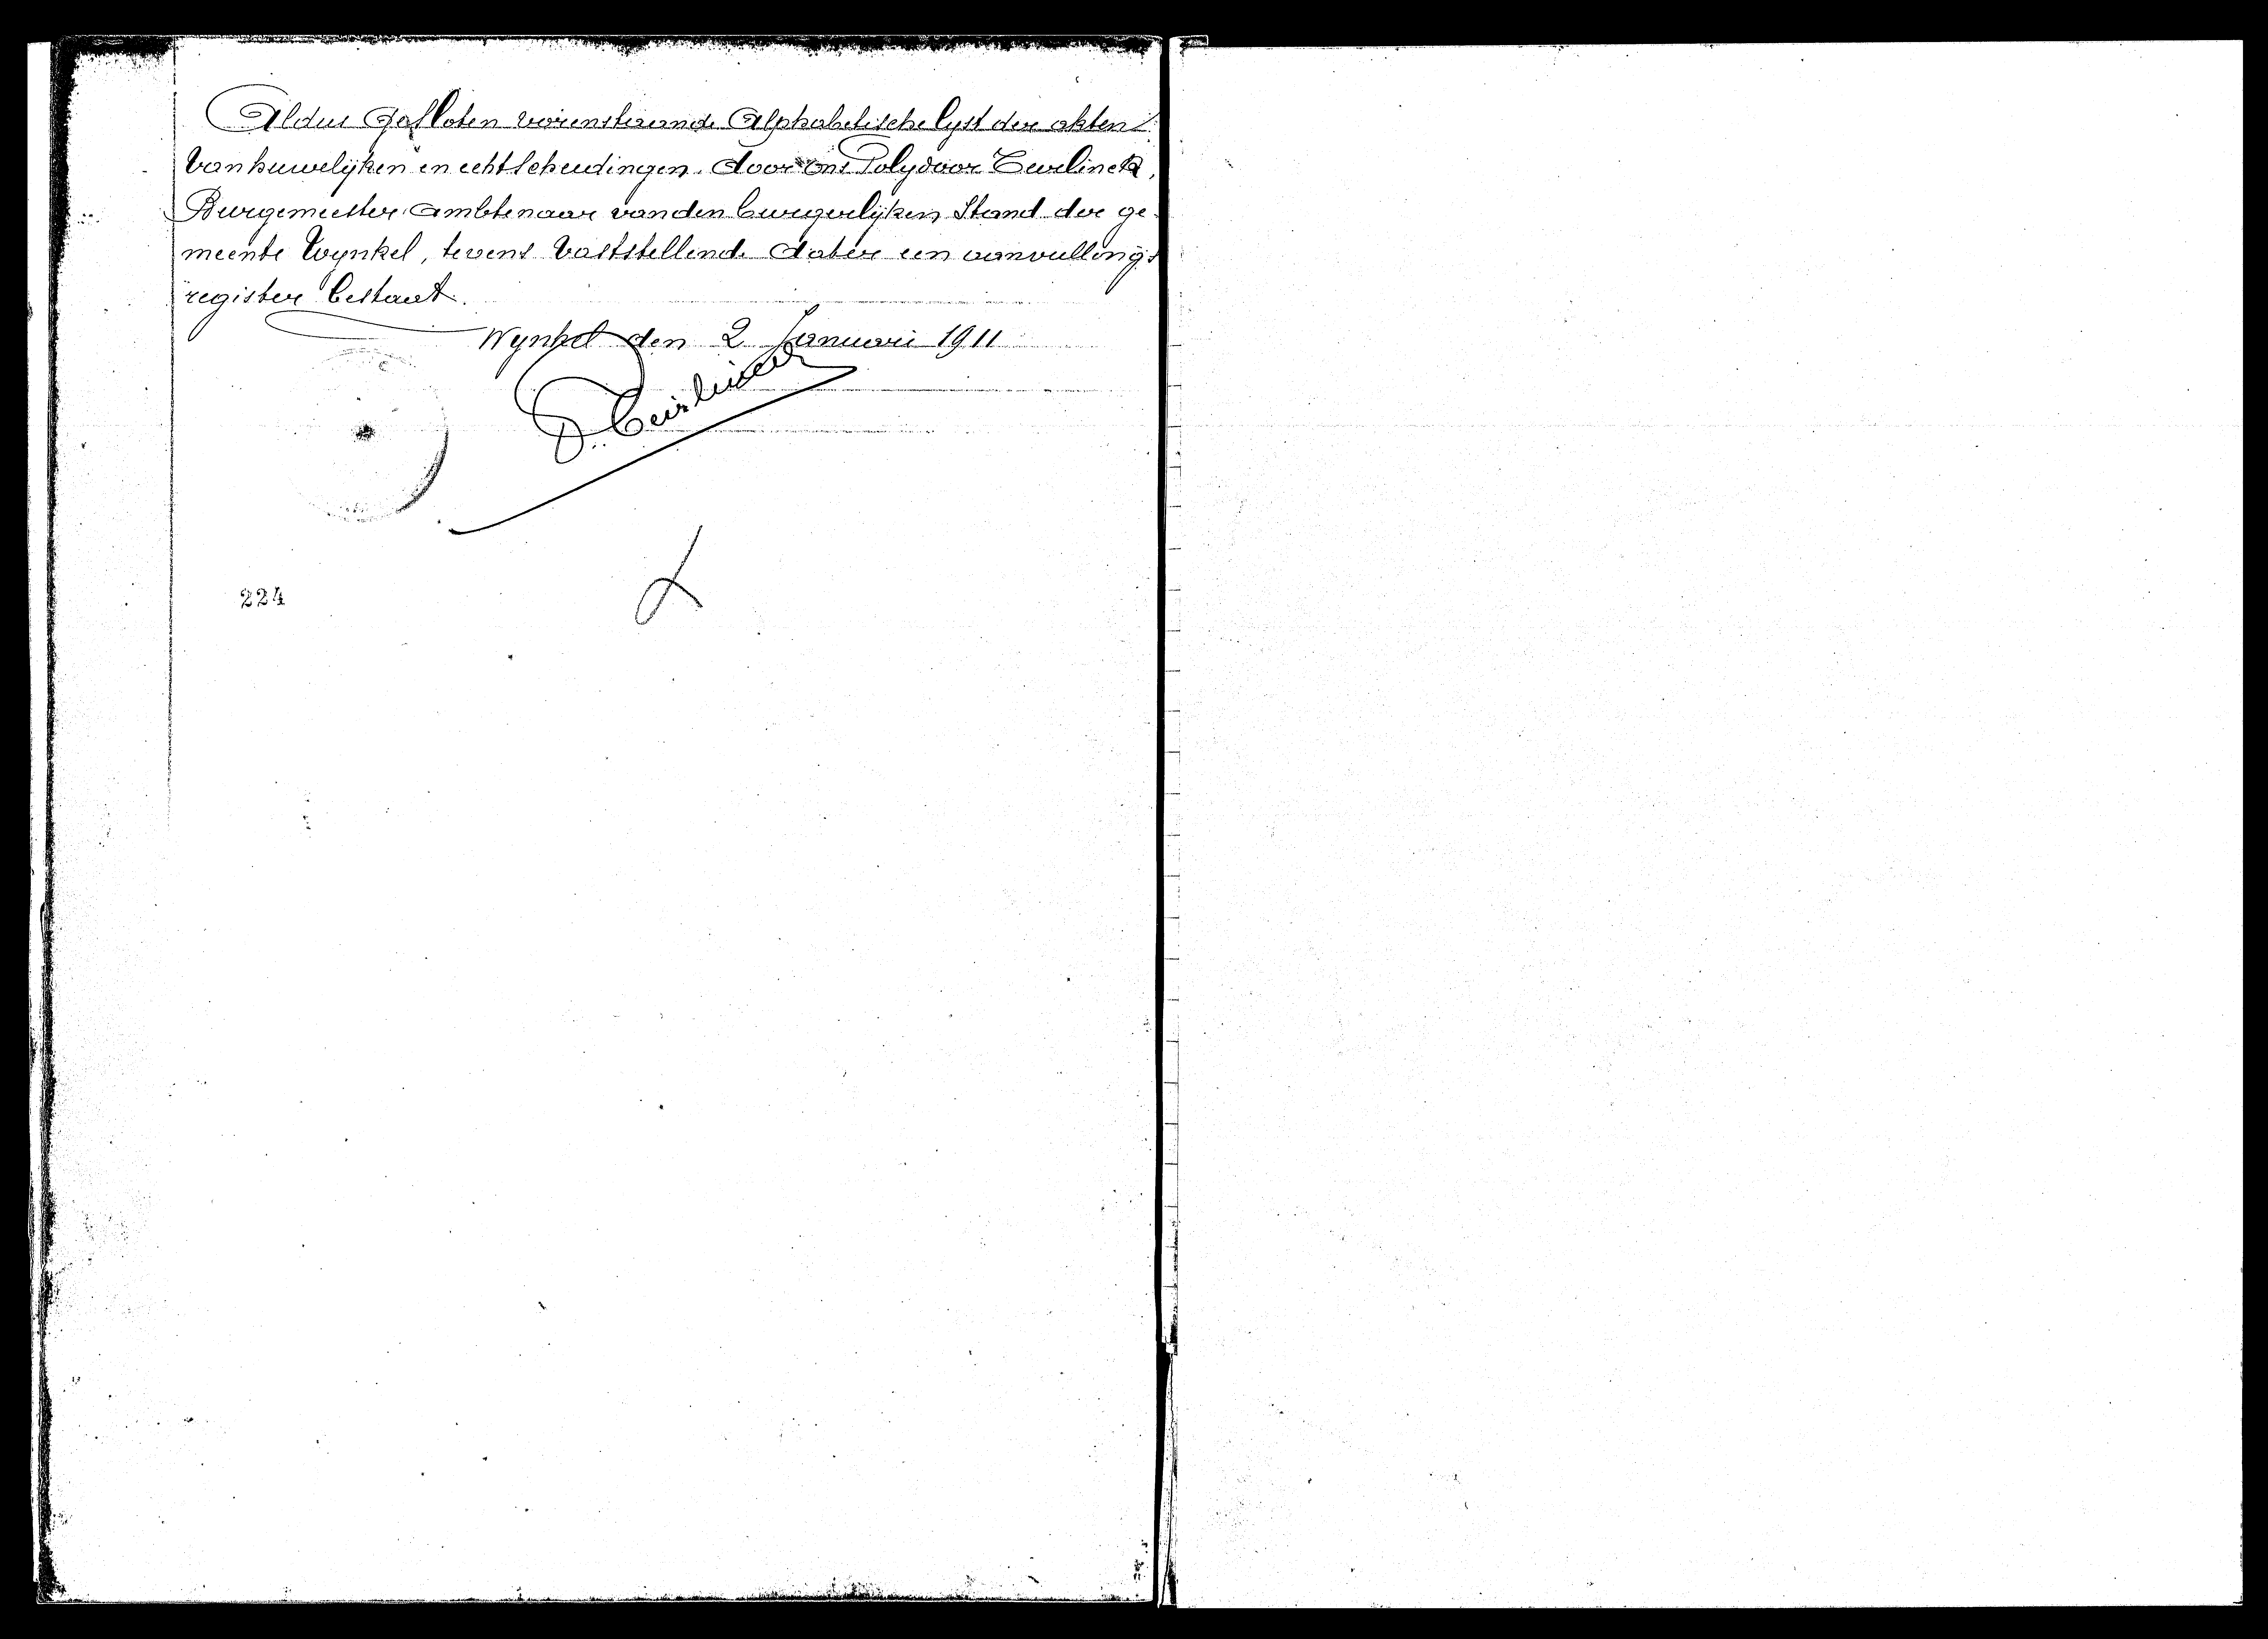 Aldus Gesloten vorenstaande Alphabetische lyst der akten
van huwelijken en echtscheidingen. door ons Polydoor Ceurlinck,
Burgemeester, Ambtenaar van den burgerlijken Stand der ge-
meente Wynkel, tevens vaststellende dater een aanvullings
register bestaat.
Wynkel den 2 Januari 1911
224